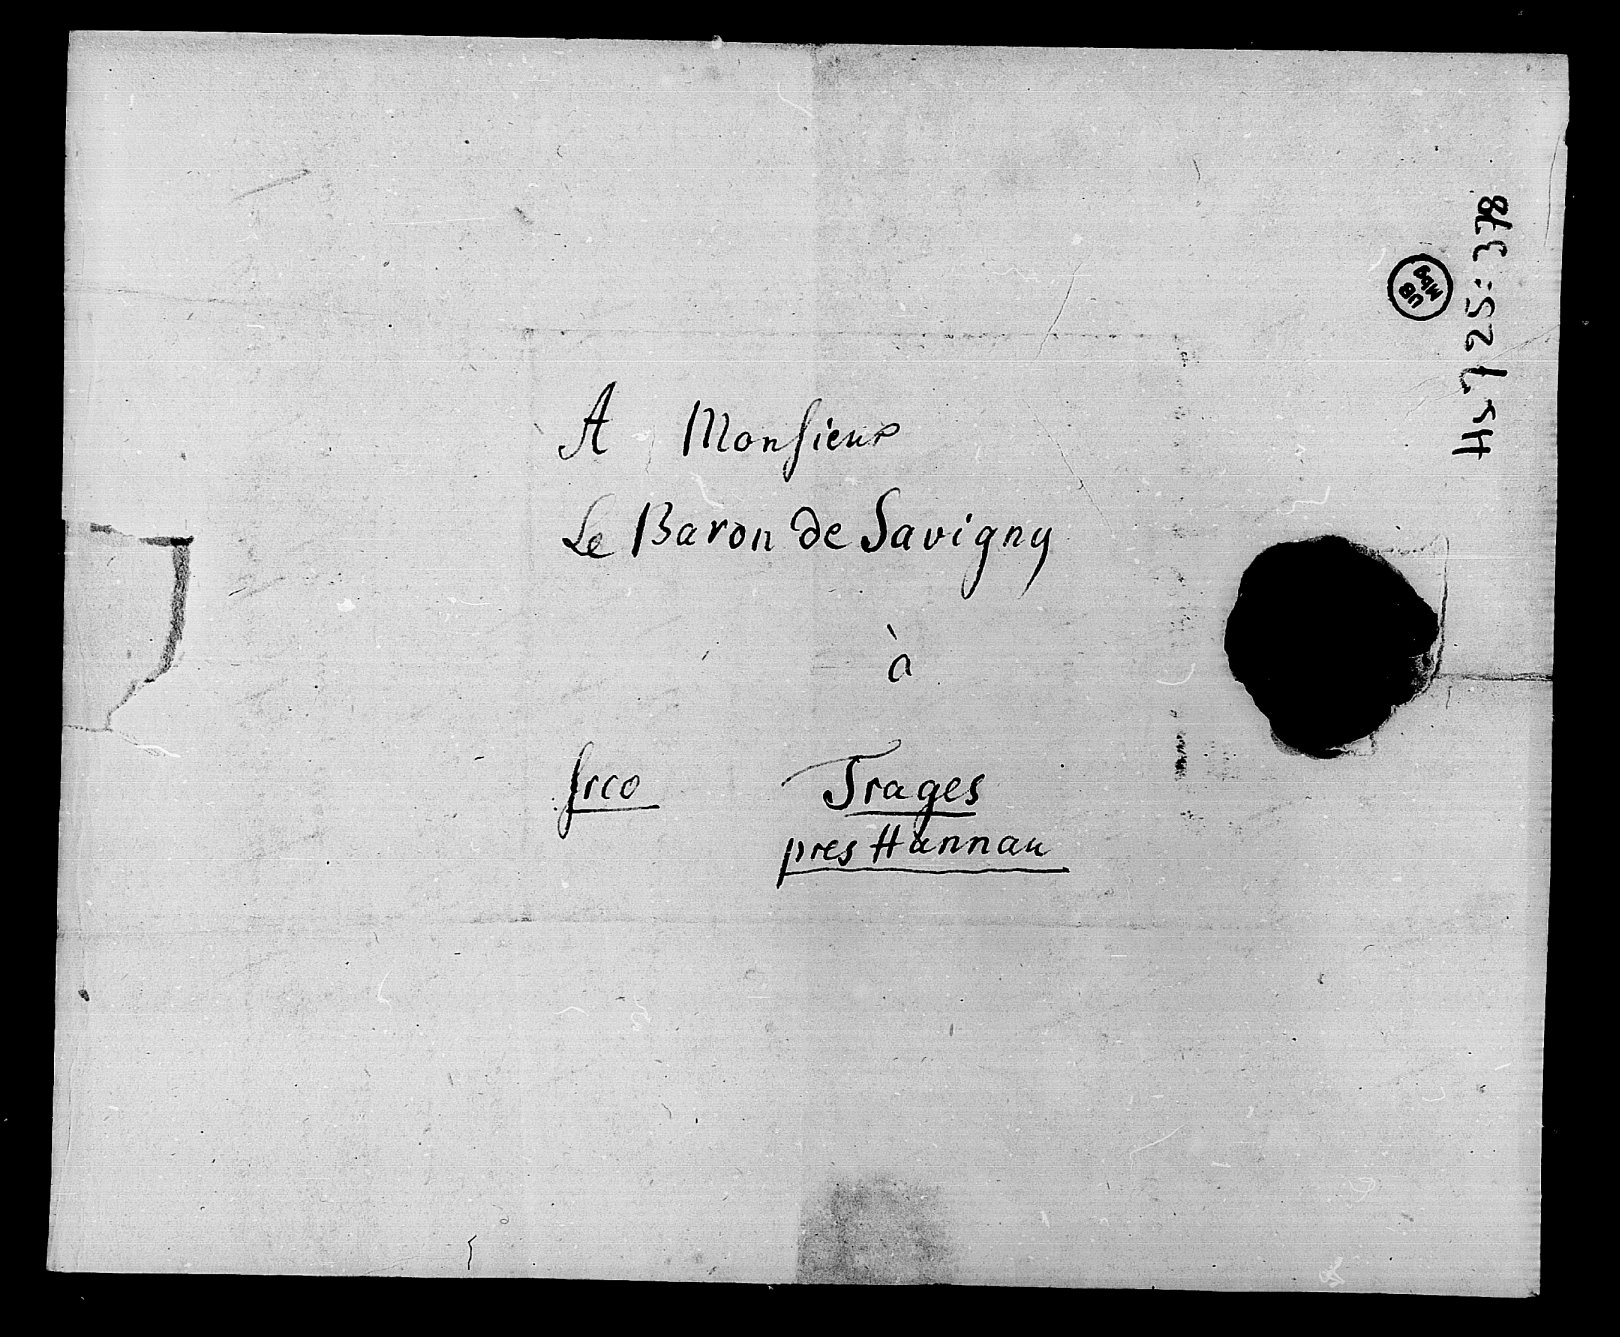 A Monsieur
Le Baron de Savigny
à
frco Trages
pres Hannau
Hs 725: 378
UB
Mbg